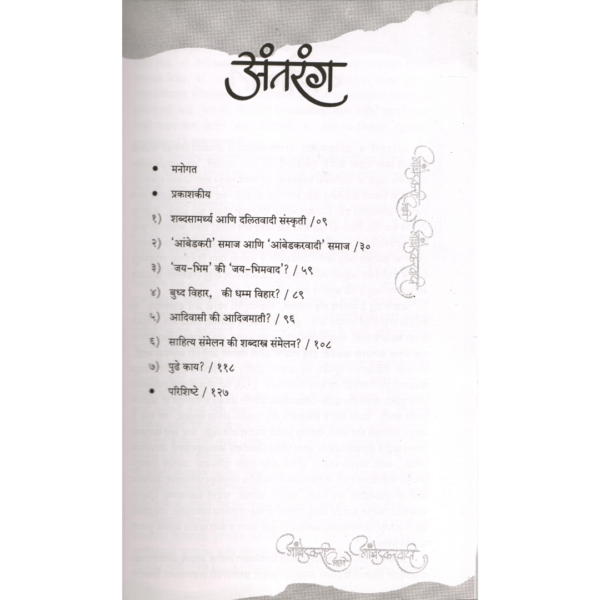 अंतरंग
• मनोगत
• प्रकाशकीय
१) शब्दसामर्थ्य आणि दलितवादी संस्कृती / ०९
२) ‘आंबेडकरी’ समाज आणि ‘आंबेडकरवादी’ समाज / ३०
३) ‘जय-भिम’ की ‘जय-भिमवाद’? / ५९
४) बुध्द विहार, की धम्म विहार? / ८९
५) आदिवासी की आदिजमाती? / ९६
६) साहित्य संमेलन की शब्दास्त्र संमेलन? / १०८
७) पुढे काय? / ११८
• परिशिष्टे / १२७
आंबेडकरी आणि आंबेडकरवादी
आंबेडकरी आणि आंबेडकरवादी